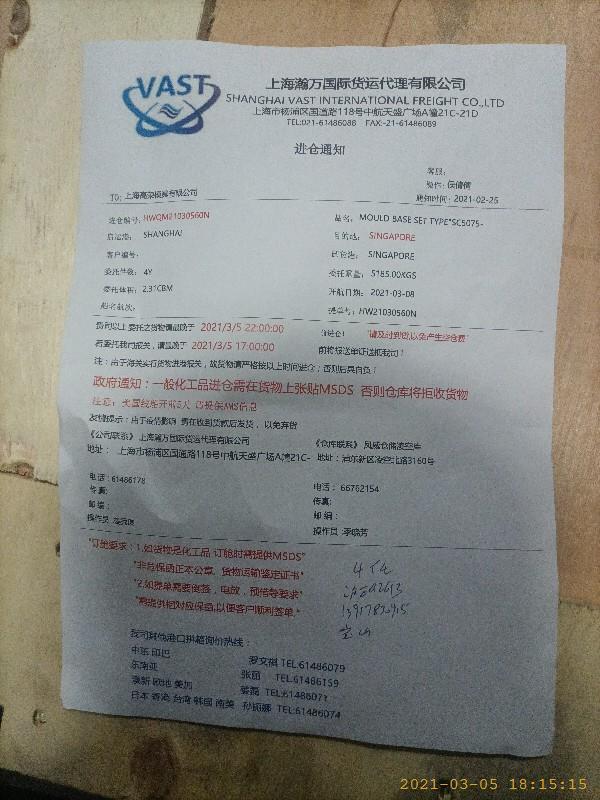 VAST
上海瀚万国际货运代理有限公司
SHANGHAI VAST INTERNATIONAL FREIGHT CO.,LTD
上海市杨浦区国通路118号中航天盛广场A幢21C-21D
TEL:021-61486088 FAX:-21-61486089
进仓通知
客服:
操作: 侯倩倩
TO: 上海高荣模具有限公司
通知时间: 2021-02-25
进仓编号: HWQM21030560N
品名: MOULD BASE SET TYPE"SC5075-
启运港: SHANGHAI
目的地: SINGAPORE
客户编号:
SINGAPORE
委托件数: 4Y
委托重量: 5185.00KGS
委托体积: 2.31CBM
开航日期: 2021-03-08
船名航次:
提单号: HW21030560N
贵司以上委托之货物请最晚于 2021/3/5 22:00:00 前进仓! "请及时到货,以免产生空仓费"
若委托我司报关, 请最晚于 2021/3/5 17:00:00 前将报送单证送抵我司!
注: 由于海关实行货物进港报关, 故货物请严格按以上时间进仓; 否则后果自负!
政府通知: 一般化工品进仓需在货物上张贴MSDS 否则仓库将拒收货物
注意: 美国线船开前5天 请提供AMS信息
友情提示: 由于疫情影响 需在收到货款后发货, 以免弃货
《公司联系》上海瀚万国际货运代理有限公司
《仓库联系》
地址: 上海市杨浦区国通路118号中航天盛广场A幢21C-
地址: 浦东新区凌空北路3160号
电话: 61486178
电话: 66762154
传真:
传真:
邮编:
邮编:
操作员
操作员 李晓芳
"订舱要求: 1.如货物是化工品 订舱时需提供MSDS"
"非危保函正本公章, 货物运输鉴定证书"
"2.如提单需要倒签, 电放, 预借等要求"
"需提供相对应保函,以便客户顺利签单."
我司其他港口拼箱询价热线:
中东 印巴 罗文祺 TEL:61486079
东南亚 张丽 TEL:61486159
澳新 欧地 美加
日本 香港 台湾 韩国 南美 孙娜娜 TEL:61486074
2021-03-05 18:15:15